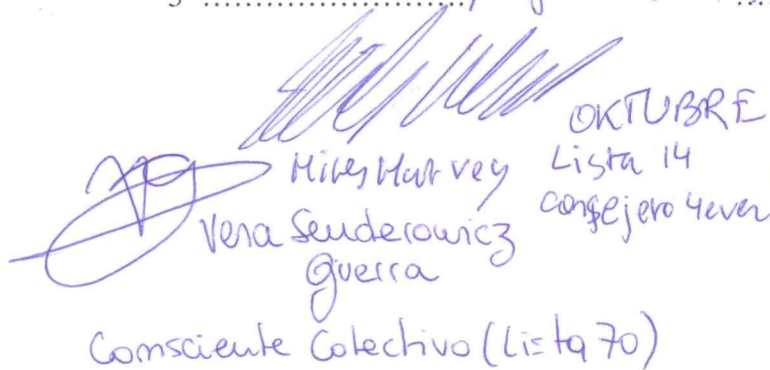 OKTUBRE
Lista 14
consejero 4ever
Vera Senderowicz
Guerra
Consciente Colectivo (Lista 70)